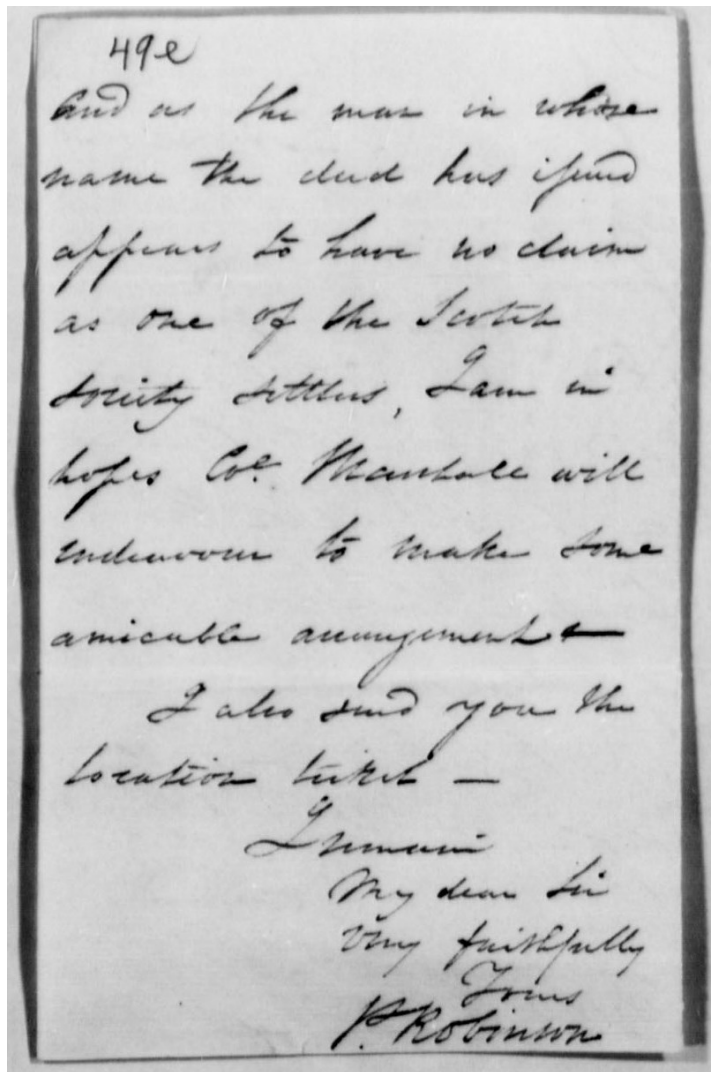 49e
And as the man in whose
name the deed has issued
appears to have no claim
as one of the Scotch
Society settlers, I am in
hopes Col. Marshall will
endeavour to make some
amicable arrangement —
I also send you the
location ticket —
I remain
My dear Sir
Very faithfully
Yours
P. Robinson